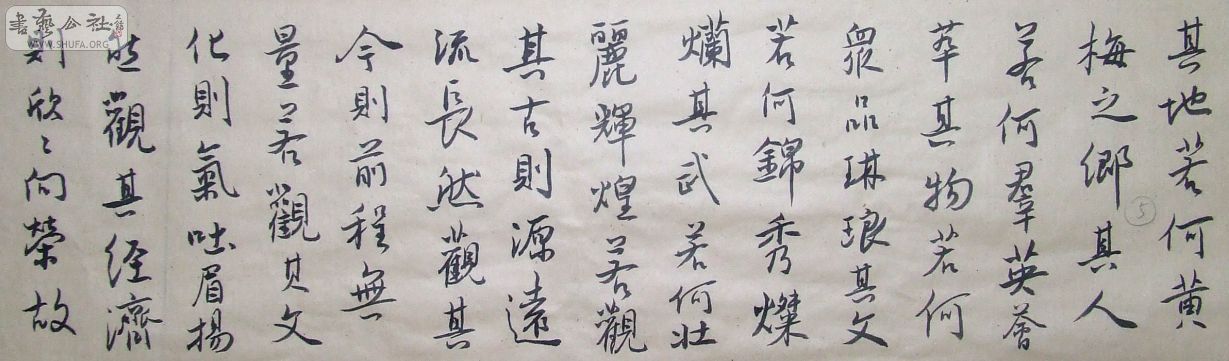 其地若何黄
梅之鄉其人
若何羣英薈
萃其物若何
衆品琳琅其文
若何錦秀燦
爛其武若何壯
麗輝煌若觀
其古則源遠
流長然觀其
今則前程無
量若觀其文
化則氣吐眉揚
然觀其经濟
則欣〻向榮故
⑤
書藝公社
WWW.SHUFA.ORG